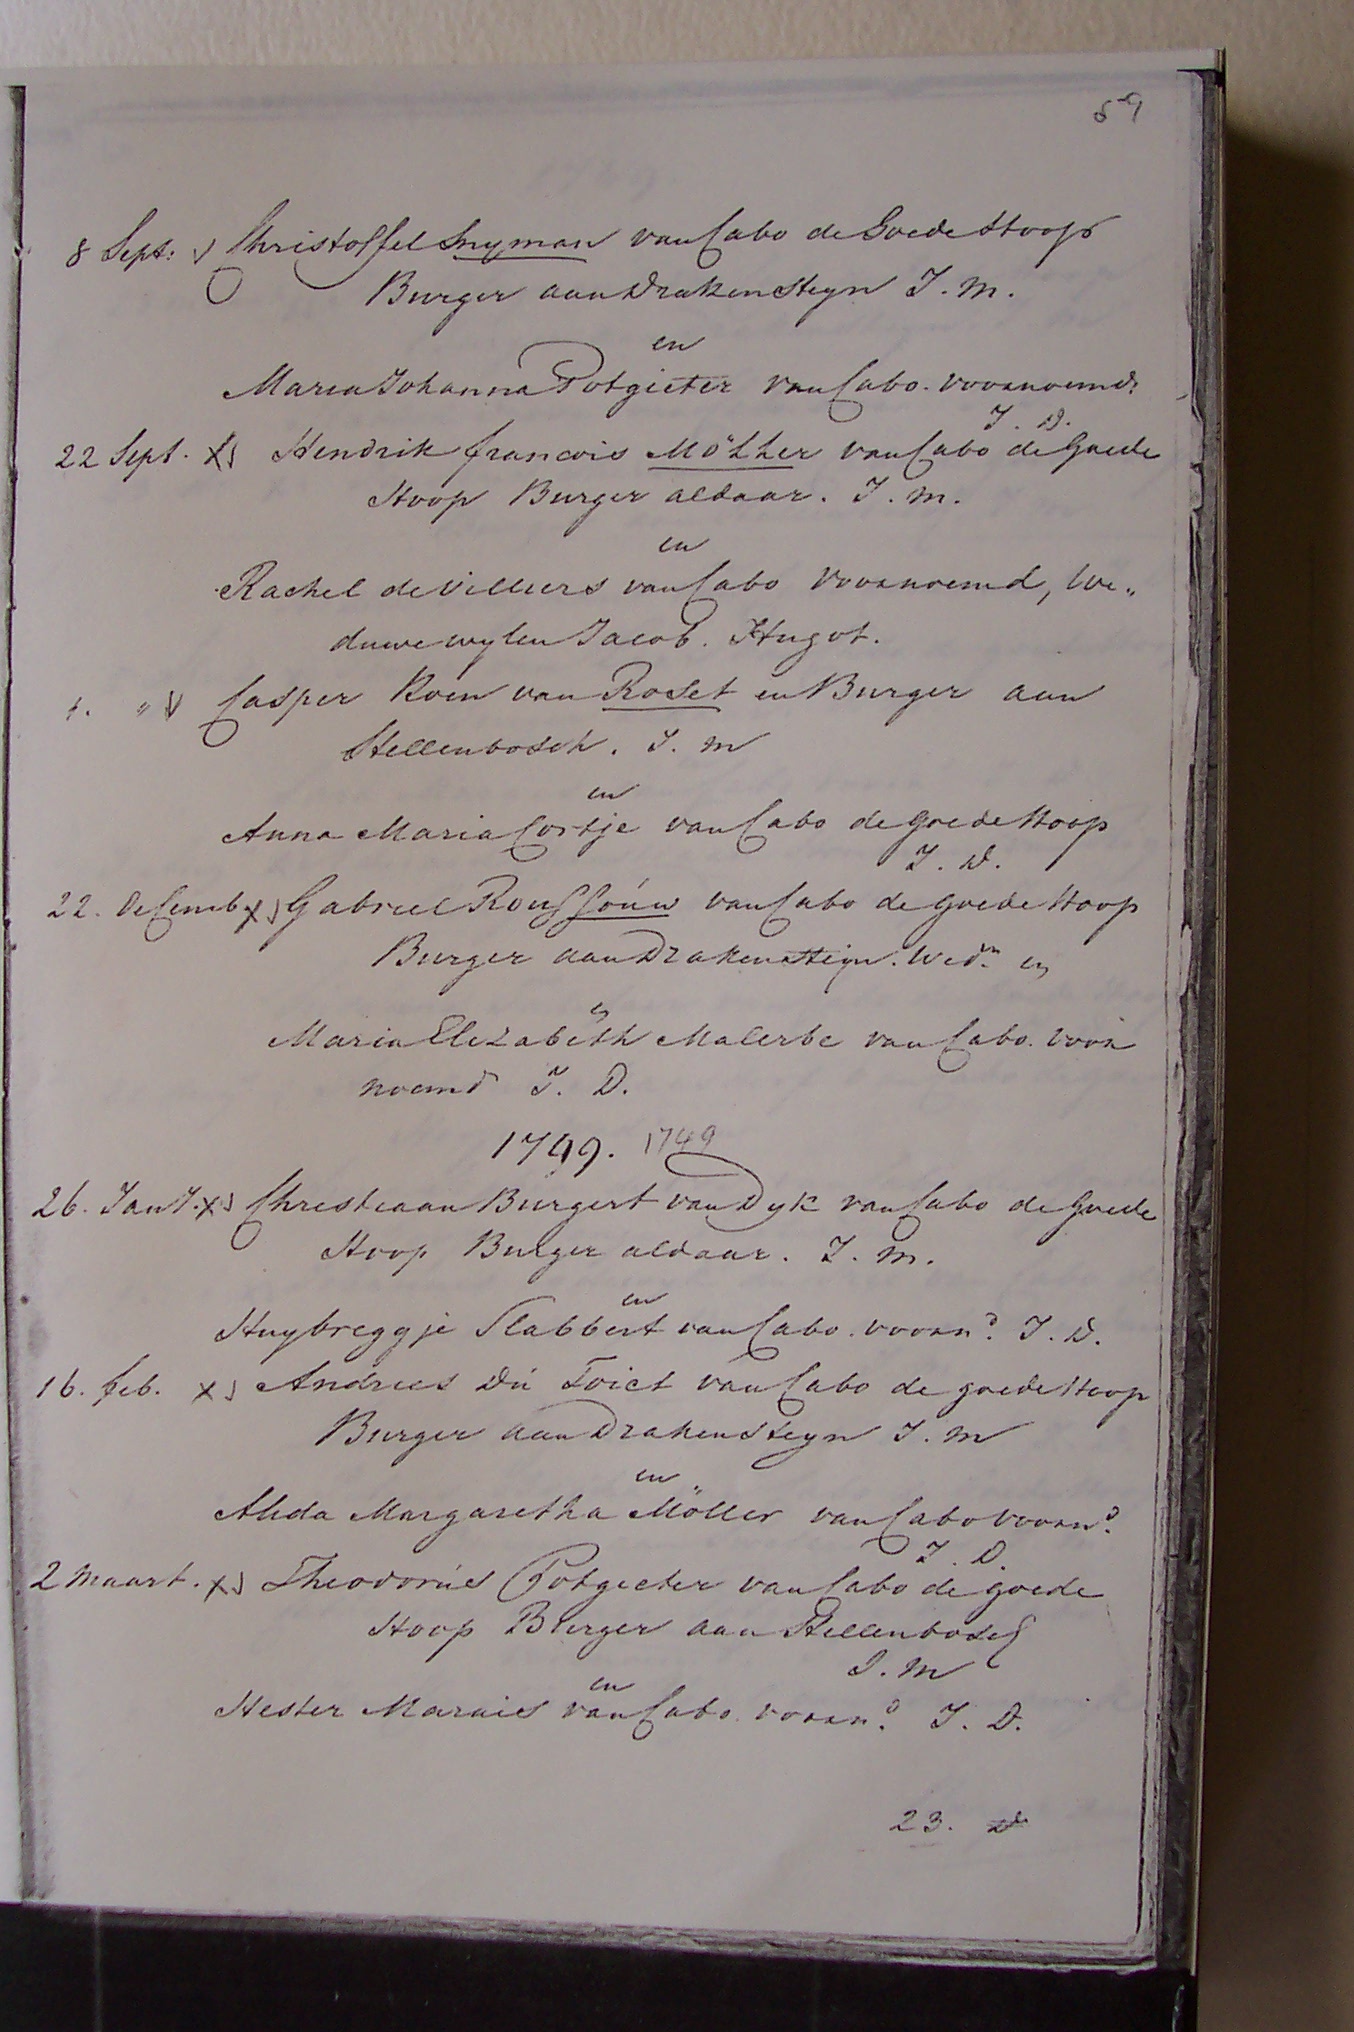 59
8 Sept: Christoffel Snyman van Cabo de Goede Hoop
Burger aan Drakensteyn J. M.
en
Maria Johanna Potgieter van Cabo. voornoemd.
J. D.
22 Sept. X Hendrik francois Möller van Cabo de Goede
Hoop Burger aldaar. J. M.
en
Rachel de Villiers van Cabo voornoemd, We„
duwe wylen Jacob. Hugot.
„ Casper Koen van Roset en Burger aan
Stellenbosch. J. M
en
Anna Maria Cortje van Cabo de Goede Hoop
J. D.
22. Decemb X Gabriel Roussoúw van Cabo de goede Hoop
Burger aan Drakensteijn. Wedr. en
en
Maria Elizabeth Malerbe van Cabo. voor
noemd J. D.
1749. 1749
26. JanJ. X Christiaan Burgert van Dyk van Cabo de Goede
Hoop Burger aldaar. J. M.
en
Huybreggje Slabbert van Cabo. voornd. J. D.
16. feb. X Andries Dú Toict van Cabo de goede Hoop
Burger aan Drakensteyn J. M
en
Alida Margaretha Möller van Cabo voornd.
J. D.
2 Maart. X Theodorús Potgieter van Cabo de goede
Hoop Burger aan Stellenbosch
J. M
en
Hester Marais van Cabo. voornd. J. D.
23.